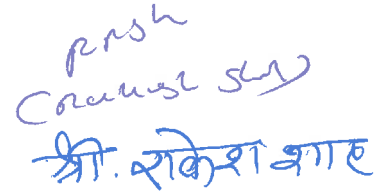 (Rakesh Shah)
श्री. राकेश शाह